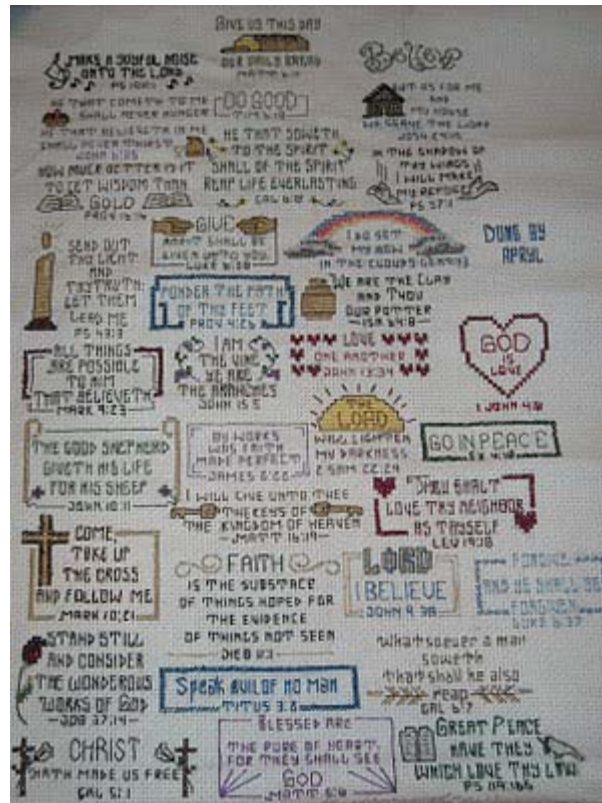 GIVE US THIS DAY
OUR DAILY BREAD
MATT 6:11
MAKE A JOYFUL NOISE
UNTO THE LORD
BUT AS FOR ME
AND
MY HOUSE
WE SERVE THE LORD
JOSH 24:15
HE THAT COMETH TO ME
SHALL NEVER HUNGER
HE THAT BELIEVETH IN ME
SHALL NEVER THIRST
JOHN 6:35
DO GOOD
HE THAT SOWETH
TO THE SPIRIT
SHALL OF THE SPIRIT
REAP LIFE EVERLASTING
GAL 6:8
IN THE SHADOW OF
THY WINGS
I WILL MAKE
MY REFUGE
PS 57:1
HOW MUCH BETTER IS IT
TO GET WISDOM THAN
GOLD
PROV 16:16
SEND OUT
THY LIGHT
AND
THY TRUTH:
LET THEM
LEAD ME
PS 43:3
GIVE
AND IT SHALL BE
GIVEN UNTO YOU
LUKE 6:38
I DO SET
MY BOW
IN THE CLOUDS GEN 9:13
DONE BY
APRYL
PONDER THE PATH
OF THY FEET
PROV 4:26
WE ARE THE CLAY
AND THOU
OUR POTTER
ISA 64:8
ALL THINGS
ARE POSSIBLE
TO HIM
THAT BELIEVETH
MARK 9:23
I AM
THE VINE
YE ARE
THE BRANCHES
JOHN 15:5
LOVE
ONE ANOTHER
JOHN 13:34
GOD
IS
LOVE
1 JOHN 4:8
THE
LORD
WILL LIGHTEN
MY DARKNESS
2 SAM 22:29
THE GOOD SHEPHERD
GIVETH HIS LIFE
FOR HIS SHEEP
JOHN 10:11
BY WORKS
WAS FAITH
MADE PERFECT
JAMES 2:22
GO IN PEACE
EX 4:18
I WILL GIVE UNTO THEE
THE KEYS OF
THE KINGDOM OF HEAVEN
MATT 16:19
THOU SHALT
LOVE THY NEIGHBOR
AS THYSELF
LEV 19:18
COME
TAKE UP
THE CROSS
AND FOLLOW ME
MARK 10:21
FAITH
IS THE SUBSTACE
OF THINGS HOPED FOR
THE EVIDENCE
OF THINGS NOT SEEN
11:1
LORD
I BELIEVE
JOHN 9:38
FORGIVE
AND YE SHALL BE
FORGIVEN
LUKE 6:37
STAND STILL
AND CONSIDER
THE WONDEROUS
WORKS OF GOD
JOB 37:14
Speak EVIL OF NO MAN
TITUS 3:2
whatsoever a man
soweth
that shall he also
reap
GAL 6:7
CHRIST
HATH MADE US FREE
GAL 5:1
BLESSED ARE
THE PURE OF HEART,
FOR THEY SHALL SEE
GOD
MATT 5:8
GREAT PEACE
HAVE THEY
WHICH LOVE THY LAW
PS 119:165